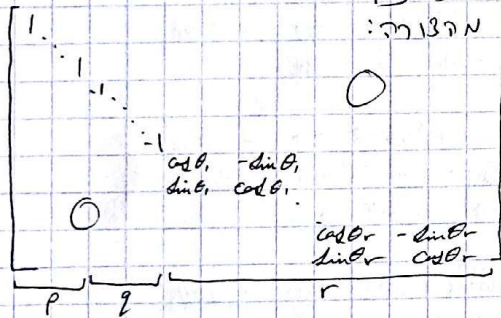 מהצורה:
1
⋱
1
-1
⋱
-1
cosθ₁ -sinθ₁
sinθ₁ cosθ₁
⋱
0
0
cosθr -sinθr
sinθr cosθr
p q r